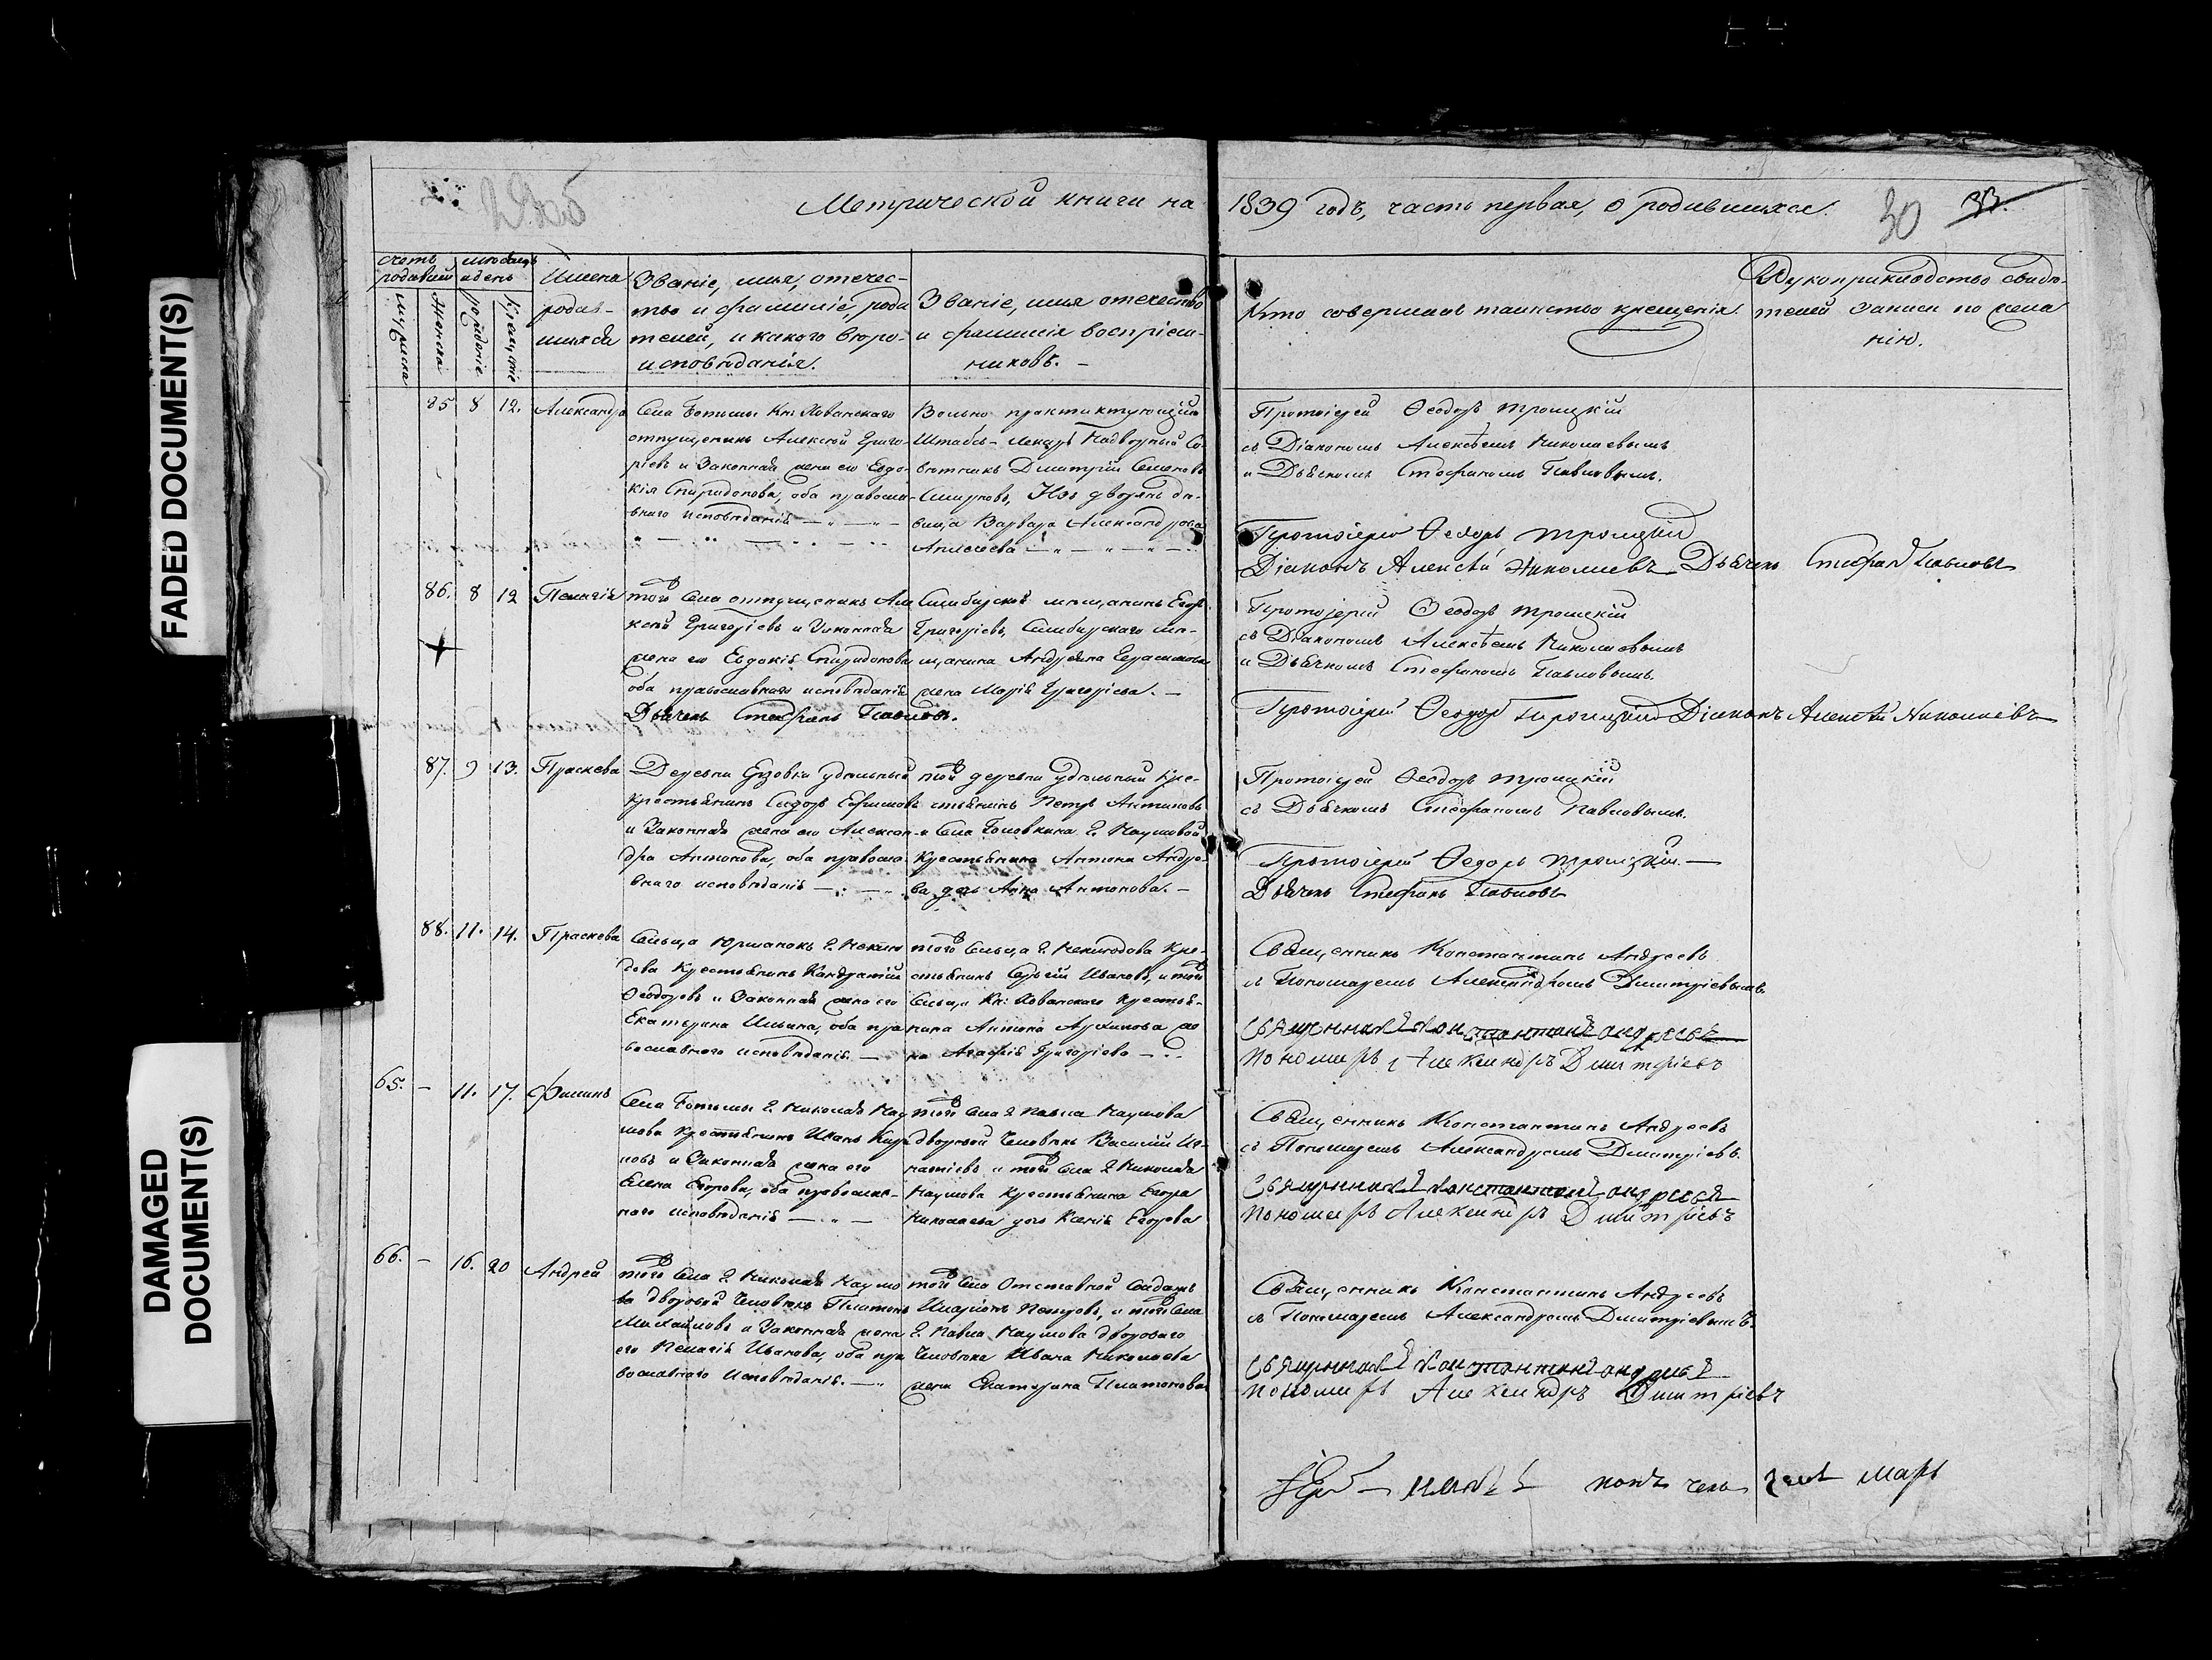 FADED DOCUMENT(S)
DAMAGED
DOCUMENT(S)
Метрической книги на 1839 годъ, часть первая, о родившихся.
30 33.
счетъ родивш
мѣсяцъ и день
мужеска
женска
рожденіе.
крещеніе
Имена
родив-
шихся
Званіе, имя, отечес-
тво и фамиліе, роди
телей, и какого вѣро-
исповѣданія.
Званіе, имя отечество
и фамилія воспріем-
никовъ. -
Кто совершалъ таинство крещенія.
Рукоприкладство свидѣ-
телей записи по жела
нію.
85 8 12. Александра
Села Ботьмы Кн: Хованскаго
отпущенникъ Алексѣй Григо-
рьевъ и Законная жена его Евдо-
кія Спиридонова, оба правосла-
внаго исповѣданія
Вольно практикующій
Штабъ-лекарь Надворный Со-
вѣтникъ Дмитрій Семеновъ
Смирновъ, Изъ дворянъ дѣ-
вица Варвара Александрова
Протоіерей Ѳеодоръ Троицкій
съ Діакономъ Алексѣемъ Николаевымъ
и Дьячкомъ Стефаномъ Павловымъ.
Протоіерей Ѳеодоръ Троицкій
Діаконъ Алексѣй Николаевъ Дьячекъ Стефанъ Павловъ
86. 8 12 Пелагія
того Села отпущенникъ Але
ксѣй Григорьевъ и Законная
жена его Евдокія Спиридонова
оба православнаго исповѣданія
Дьячекъ Стефанъ Павловъ.
Симбирской мѣщанинъ Егоръ
Григорьевъ, Симбирскаго мѣ-
щанина Андреяна Герасимова
жена Марія Григорьева. -
Протоіерей Ѳеодоръ Троицкій
съ Діакономъ Алексѣемъ Николаевымъ
и Дьячкомъ Стефаномъ Павловымъ.
Протоіерей Ѳеодоръ Троицкій Діаконъ Алексѣй Николаевъ
87. 9 13. Праскева
Деревни Ерзовки удѣльный
крестьянинъ Сидоръ Ефимовъ
и Законная жена его Алексан-
дра Антонова, оба правосла-
внаго исповѣданія
той деревни удѣльный кре-
стьянинъ Петръ Антиповъ
и Села Головкина г. Наумовой
Крестьянина Антона Андре-
ва дочь Анна Антонова. -
Протоіерей Ѳеодоръ Троицкій
съ Дьячкомъ Стефаномъ Павловымъ.
Протоіерей Ѳеодоръ Троицкій. —
Дьячекъ Стефанъ Павловъ
88. 11. 14. Праскева
Сельца Юрманокъ г. Неклю
дова Крестьянинъ Кондратій
Ѳеодоровъ и Законная жена его
Екатерина Ильина, оба пра
вославнаго исповѣданія. —
того Сельца г. Неклюдова Кре-
стьянинъ Сергѣй Ивановъ, и того
Сельца Кн: Хованскаго Крестья-
нина Антона Архипова же
на Агафія Григорьева
Священникъ Константинъ Андреевъ
съ Пономаремъ Александромъ Дмитріевымъ
Священникъ Константинъ Андреевъ
Пономарь Александръ Дмитріевъ
65. - 11. 17. Филипъ
Села Ботьмы г. Николая Нау
мова крестьянинъ Иванъ Кирь
новъ и Законная жена его
Елена Егорова, оба православ-
наго исповѣданія
того Села г. Павла Наумова
дворовой Человѣкъ Василій Иг-
натьевъ и того Села г. Николая
Наумова Крестьянина Егора
Николаева дочь Ксенія Егорова
Священникъ Константинъ Андреевъ
съ Пономаремъ Александромъ Дмитріевъ.
Священникъ Константинъ Андреевъ
Пономарь Александръ Дмитріевъ
66. - 16. 20 Андрей
того Села г. Николая Наумо
ва дворовой Человѣкъ Платонъ
Михайловъ и Законная жена
его Пелагія Иванова, оба пра
вославнаго исповѣданія. —
того Села Отставной Солдатъ
Иларіонъ Петровъ, и того Села
г. Павла Наумова двороваго
Человѣка Ивана Николаева
жена Екатерина Платонова
Священникъ Константинъ Андреевъ
съ Пономаремъ Александромъ Дмитріевымъ.
Священникъ Константинъ Андреевъ
Пономарь Александръ Дмитріевъ